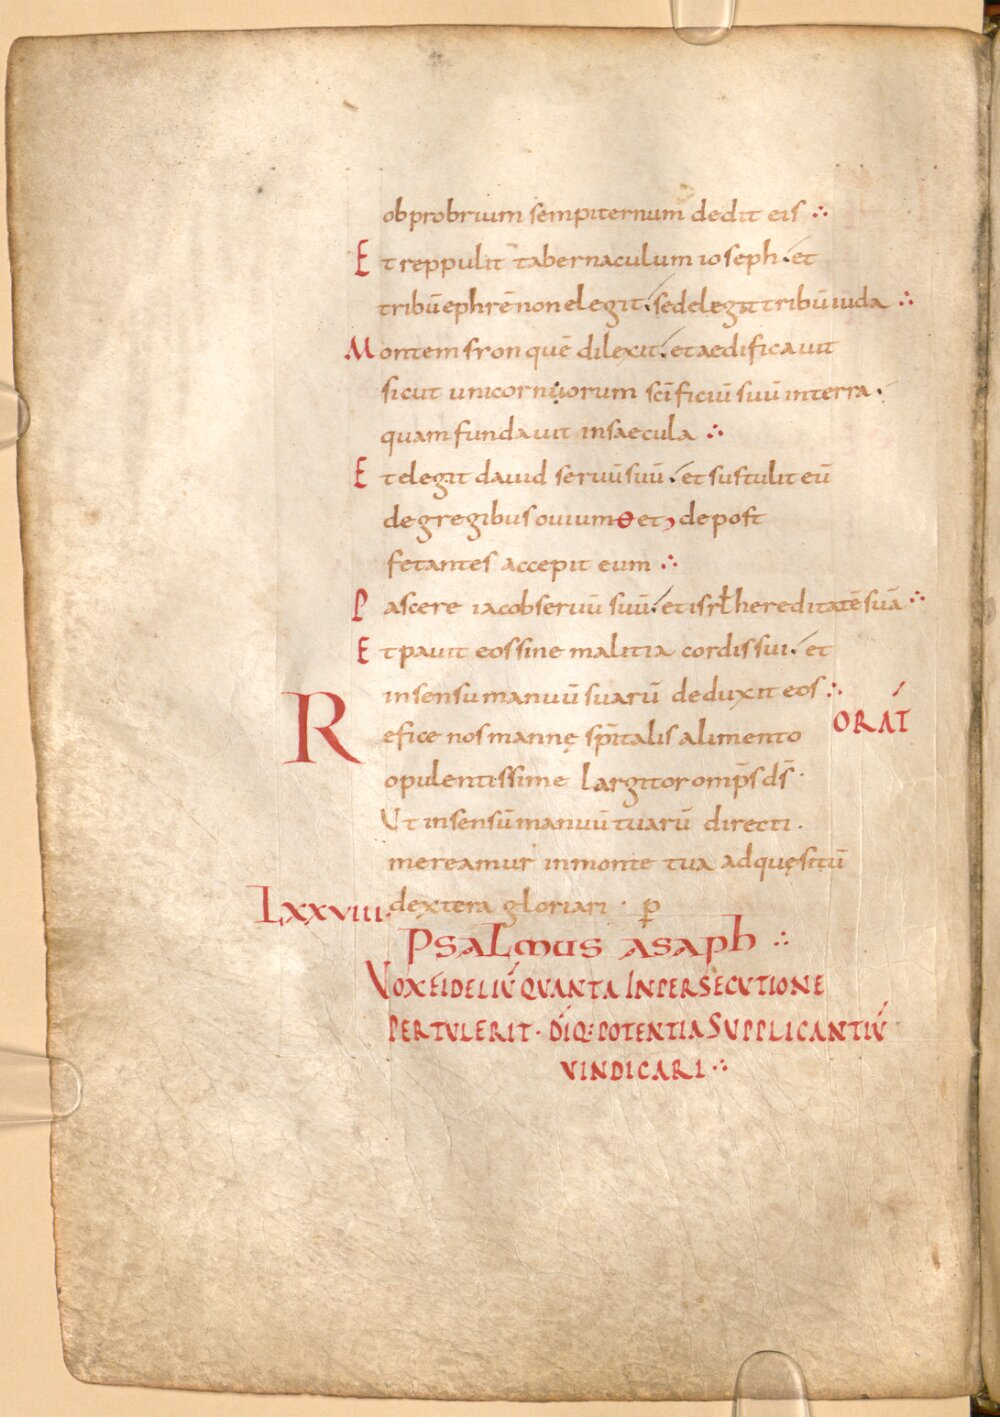 obprobrium sempiternum dedit eis ∴
Et reppulit tabernaculum ioseph. et
tribū ephrē non elegit. sed elegit tribū iuda ∴
Montem syon quē dilexit. et aedificauit
sicut unicorniorum scīficiū suū in terra.
quam fundauit in saecula ∴
Et elegit dauid seruū suū. et sustulit eū
de gregibus ouium et, de post
fetantes accepit eum ∴
Pascere iacob seruū suū. et isrł hereditatē suā ∴
Et pauit eos sine malitia cordis sui. et
in sensu manuū suarū deduxit eos ∴
ORAT̄
Refice nos mannę sp̄italis alimento
opulentissime largitor omp̄s ds̄ ·
Ut in sensū manuū tuarū directi .
mereamur in monte tua adquęsitū
LXXVIII. dextera gloriari · p̄
PSALMUS ASAPH ∴
VOX FIDELIŪ QVANTA IN PERSECVTIONE
PERTVLERIT · DĪQ: POTENTIA SVPPLICANTIŪ
VINDICARI ∴